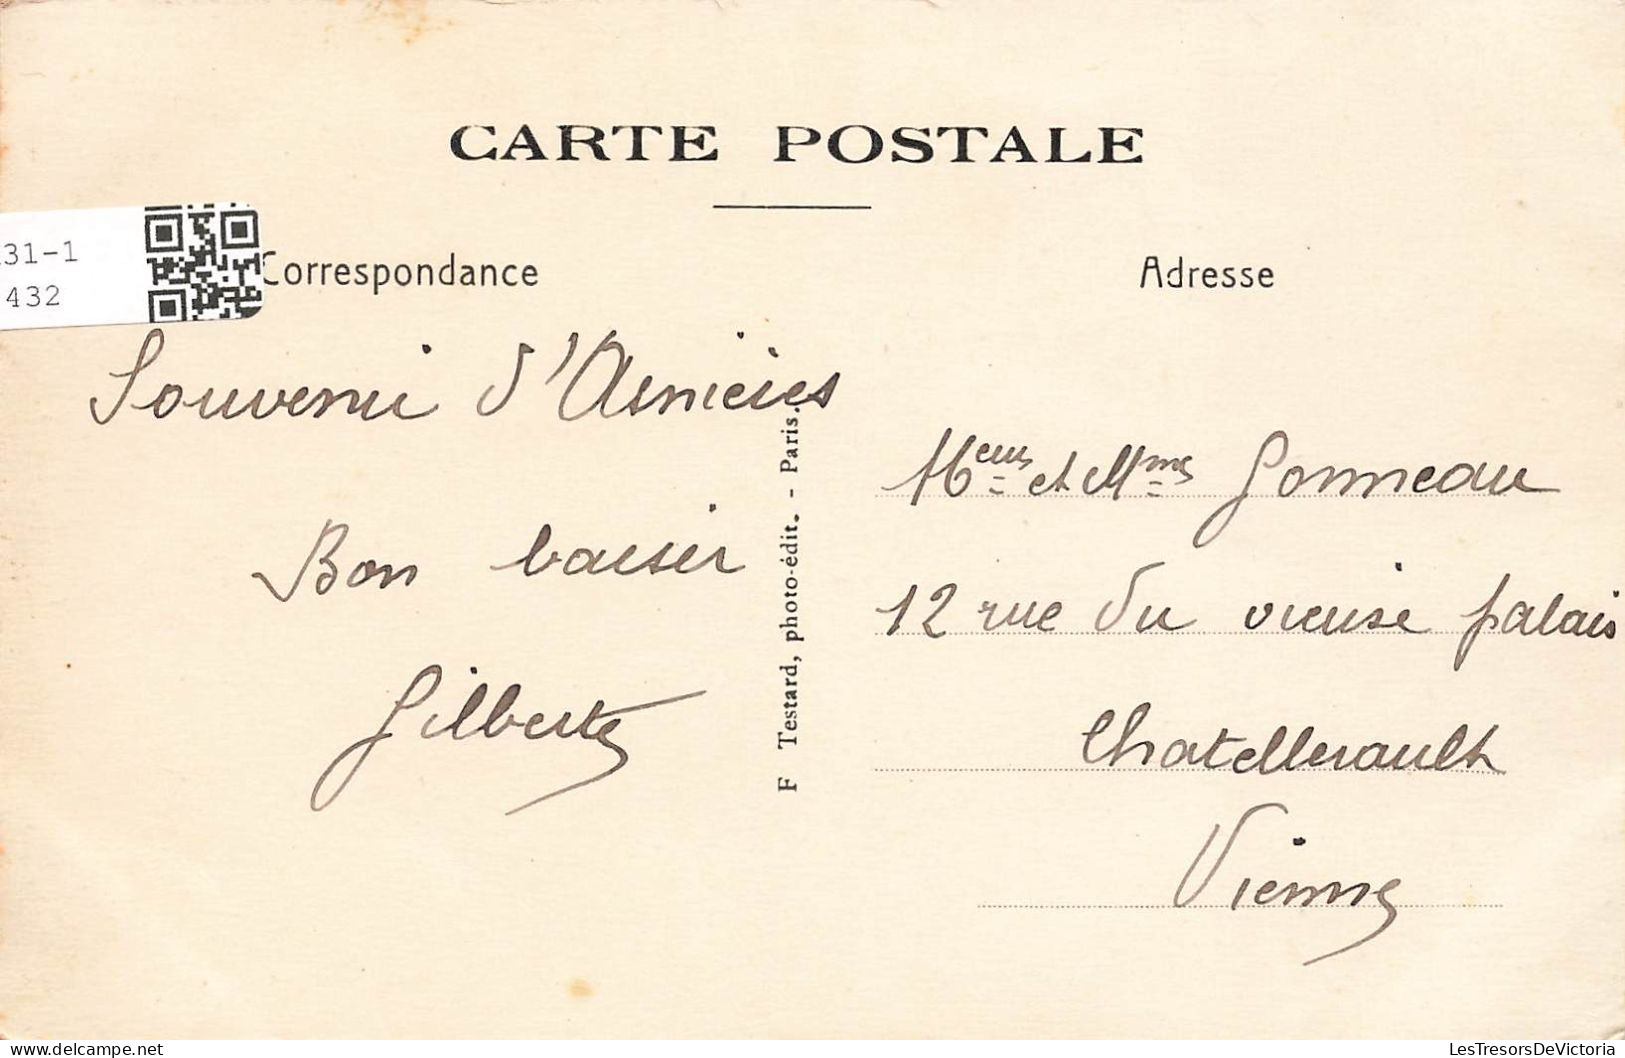 CARTE POSTALE
31-1
432
Correspondance
Souvenir d'Asnières
Bon baiser
Gilberte
F Testard, photo-édit. - Paris.
Adresse
Meur et Mme Gonneau
12 rue du vieuse palais
Chatellerault
Vienne
LesTresorsDeVictoria
delcampe.net